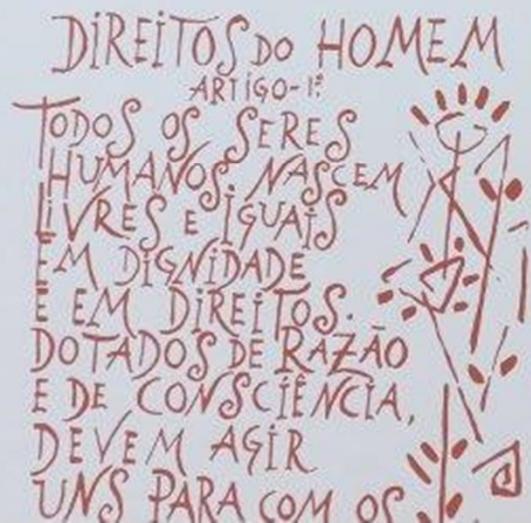 DIREITOS DO HOMEM
ARTIGO-1º
TODOS OS SERES
HUMANOS NASCEM
LIVRES E IGUAIS
EM DIGNIDADE
E EM DIREITOS.
DOTADOS DE RAZÃO
E DE CONSCIÊNCIA,
DEVEM AGIR
UNS PARA COM OS